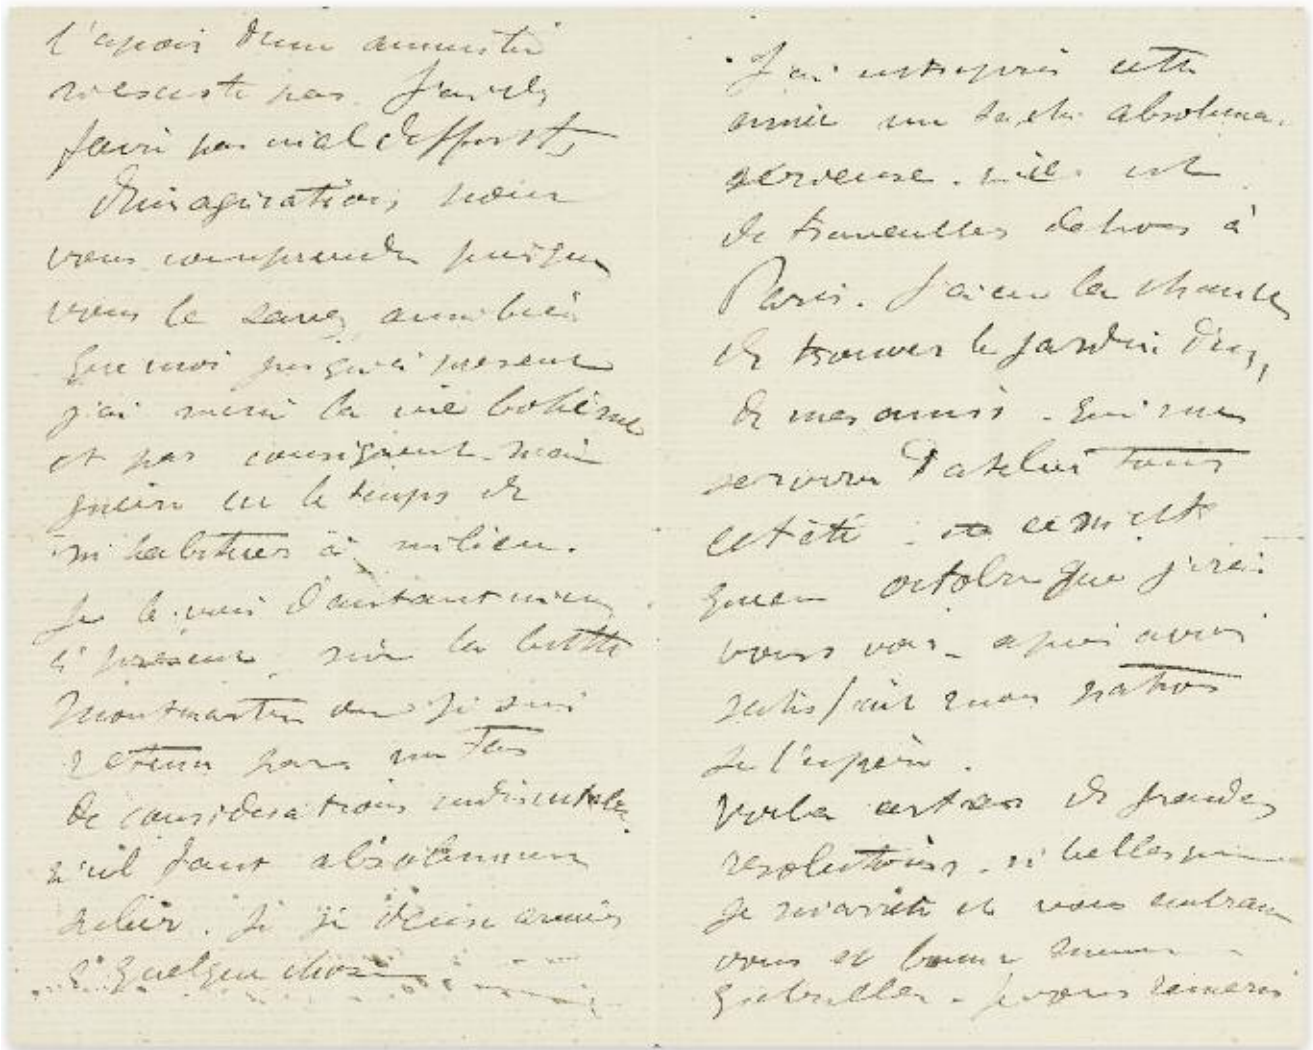 l'espoir d'une amnistie
n'existe pas. J'ai du
faire pas mal d'efforts
d'imagination, pour
vous comprendre puisque
vous le savez aussi bien
que moi jusqu'à présent
j'ai mené la vie bohème
et par conséquent
le temps de
m'habituer à milieu.
Je le vois d'autant mieux
à présent sur la butte
Montmartre où je suis
retenu par un tas
de considérations
qu'il faut absolument
subir. Si je veux arriver
à quelque chose
J'ai entrepris cette
année une tâche absolumen.
sérieuse. est
de travailler dehors à
Paris. J'ai eu la chance
de trouver le jardin d'un,
de mes amis. qui me
servira d'atelier tout
cet été. ce n'est
qu'en octobre que j'irai
vous voir _ après avoir
satisfait mon patron
je l'espère.
Voilà certes de grandes
résolutions. si belles que
je m'arrête et vous embrasse
vous et bonne maman _
Gabrielle. Je vous remercie